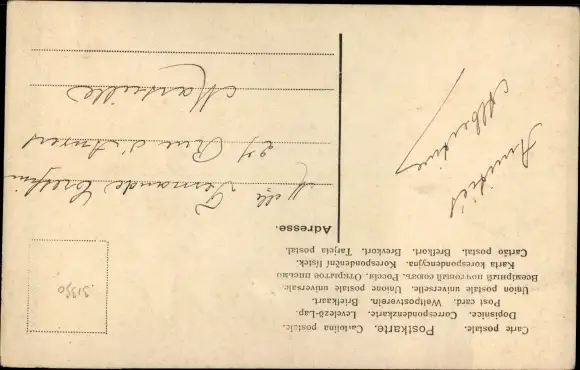 Carte postale. Postkarte. Cartolina postale.
Dopisnice. Correspondenzkarte. Levelező-Lap.
Post card. Weltpostverein. Briefkaart.
Union postale universelle. Unione postale universale
Всемірный почтовый союзъ. Россія. Открытое письмо
Karta korespondencyjna. Korespondenční lístek.
Cartão postal. Bretkort. Brevkort. Tarjeta postal.
Adresse.
Amitiés
Albertine
Melle Fernande Crespin
27 Rue d'Anvers
Marseille
31350